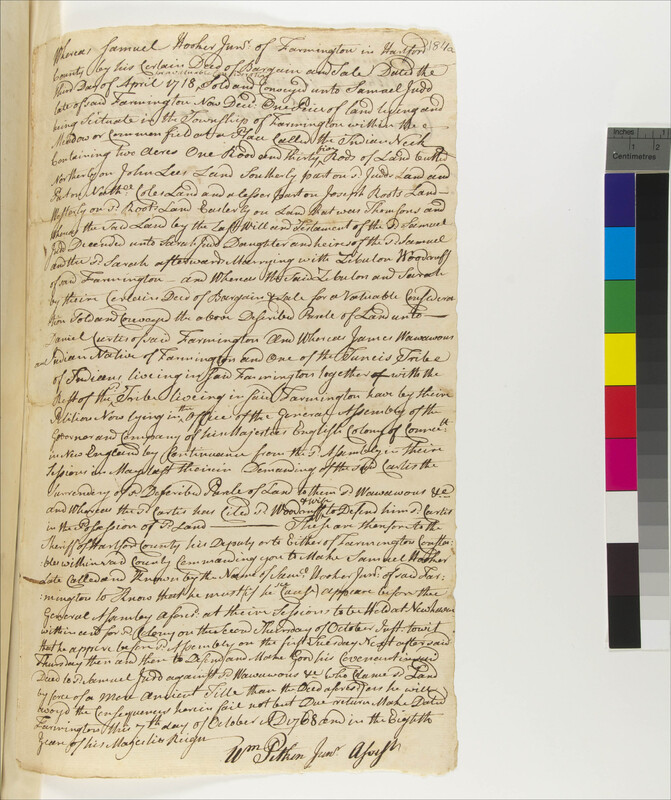 Whereas Samuel Hooker Junr. of Farmington in Hartford 184a
County by his Certain Deed of Bargain and Sale Dated the
third Day of April 1718 Sold and Conveyed unto Samuel Judd
late of said Farmington Now Decd. One Piece of land lying and
being Scituate in the Township of Farmington within the
Meadow or Common field at a Place Called the Indian Neck
Containing five Acres One Rood and thirty Rods of Land Butted
Northerly on John Lees Land Southerly part on sd. Judds Land and
Part on Nathll Coles Land and a lesser part on Joseph Roots Land
Westerly on sd. Roots Land Easterly on Land that was Thomsons and
Whereas the Said Land by the Last Will and Testament of the sd. Samuel
Judd Decended unto Sarah Judd Daughter and heires of the sd. Samuel
and the sd. Sarah afterward Marrying with Zebulon Woodruff
of said Farmington and Whereas the Said Zebulon and Sarah
by theire Certain Deed of Bargain & Sale for a Valuable Considera
tion Sold and Conveyed the above Described Parcle of Land unto
Daniel Curtis of said Farmington And Whereas James Wawawous
an Indian Native of Farmington and One of the Tuncis Tribe
of Indians liveing in said Farmington together with the
Rest of the Tribe liveing in said Farmington have by theire
Petition Now lying in the Office of the General Assembly of the
Governor and Company of his Majesties English Colony of Connectt
in New England by Continuance from the sd. Assembly in theire
Sessions in May last therein Demanding of the Sd Curtis the
Surrendry of sd Described Parcle of Land to them sd Wawawous &c
and Whereas the sd. Curtis has Cited sd Woodruff & wife to Defend him sd Curtis
in the Possession of sd. Land These are therefore to the
Sheriff of Hartford County his Deputy or to Either of Farmington Consta
bles within said County Commanding you to Make Samuel Hooker
Late Called and Known by the Name of Samll. Hooker Junr. of said Far-
mington to Know that he must (if he see Cause) appeare before the
General Assembly aforsd. at theire Sessions to be Held at Newhaven
within and for sd Colony on the Second Thursday of October Inst. to wit
that he appeire before sd Assembly on the first Tuesday Next after said
Thursday then and there to Defend and Make Good his Covenant in said
Deed to sd. Samuel Judd against sd Wawawous &c who Claime sd Land
by force of a More Ancient Title than the Deed aforesd or he will
avoyd the Consequences herein fail not but Due return Make Dated
Farmington this 7th day of October AD 1768 and in the Eighth
Year of his Majesties Reign
Wm Pitkin Junr. Assist